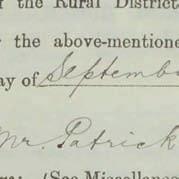 f the Rural District
the above-mentione
ay of Septemb
Mr. Patrick
(See Miscellaneo